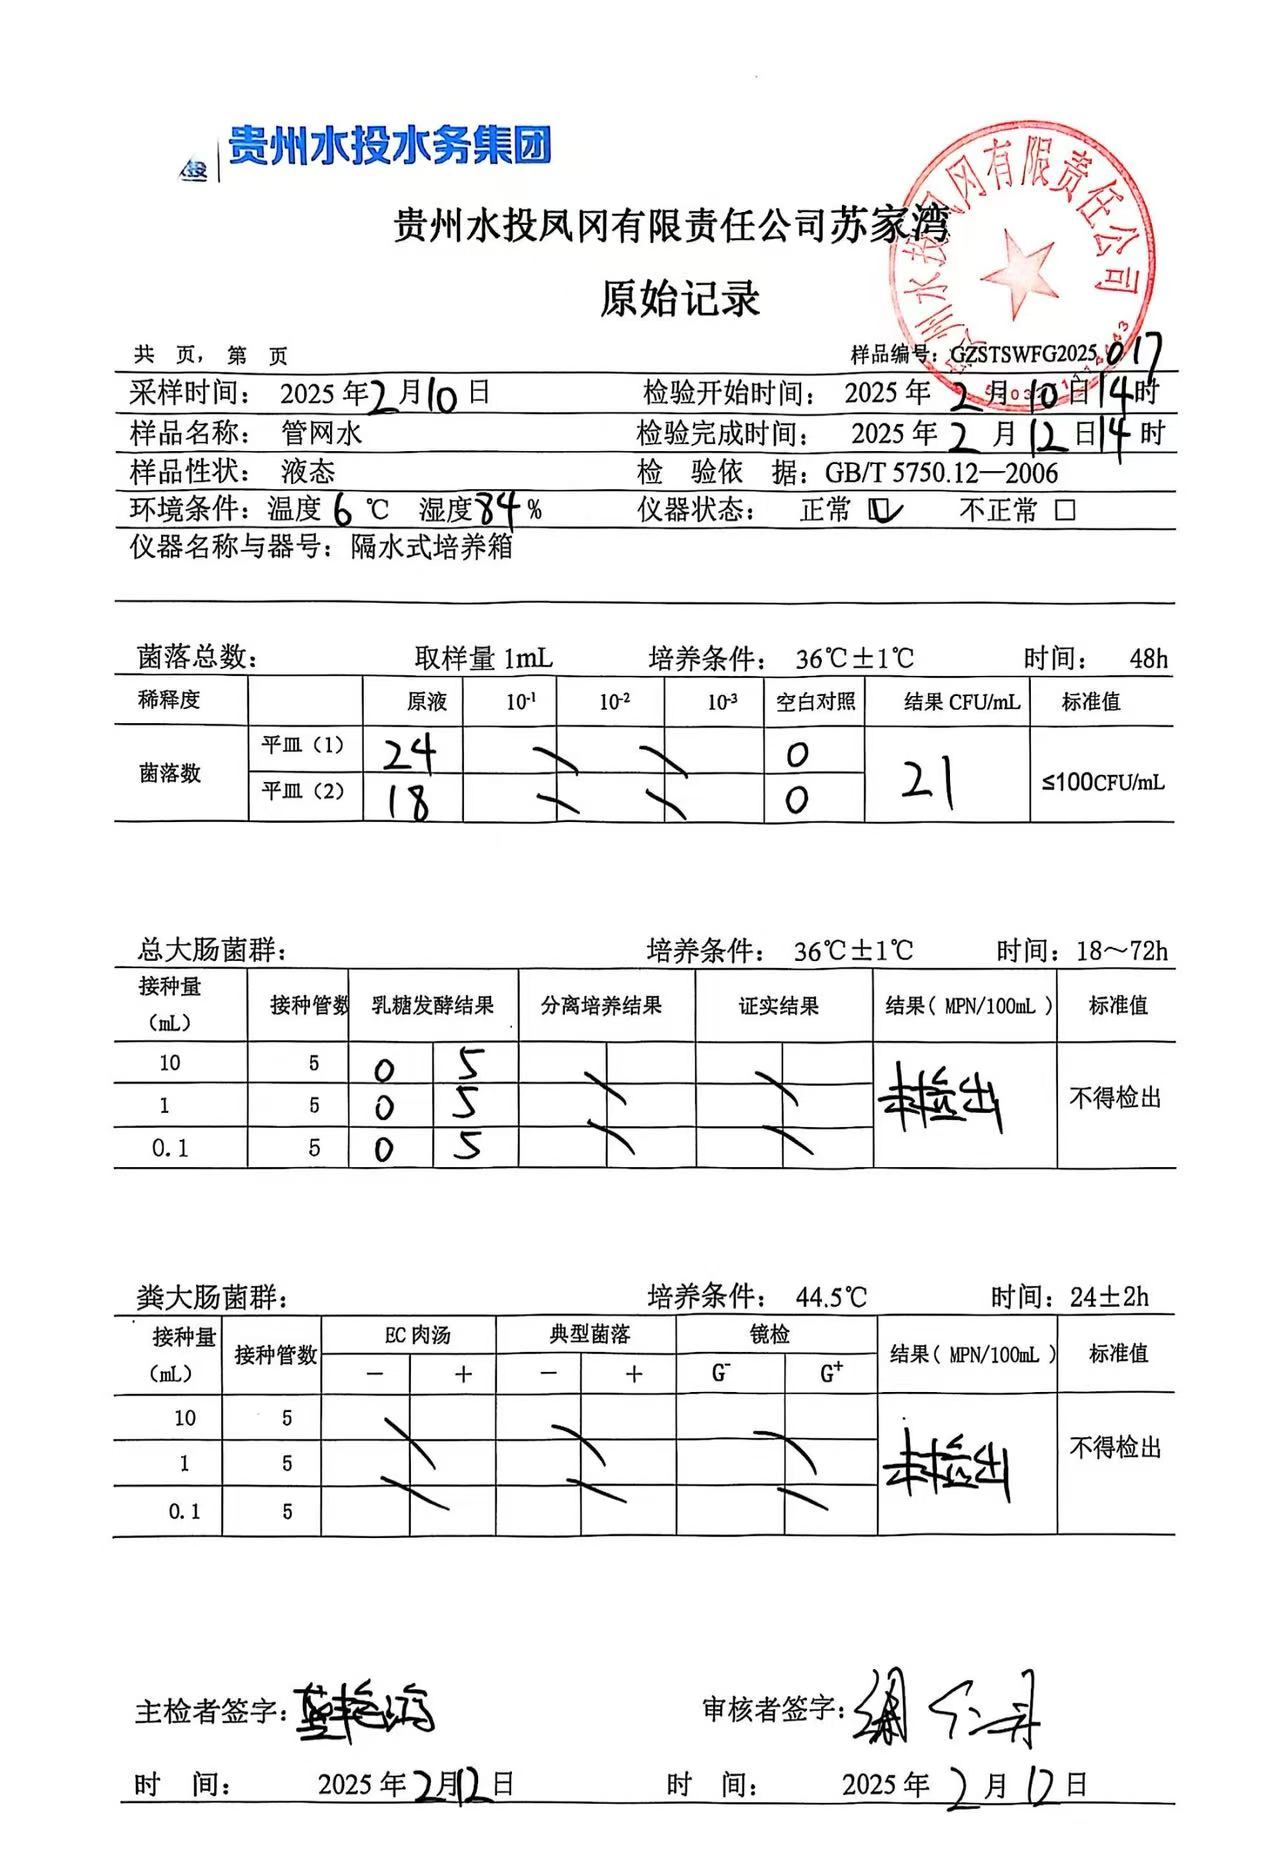 贵州水投水务集团
贵州水投凤冈有限责任公司苏家湾
原始记录
贵州水投凤冈有限责任公司
共 页，第 页 样品编号：GZSTSWFG2025 017
采样时间： 2025 年 2 月 10 日 检验开始时间： 2025 年 2 月 10 日 14 时
样品名称： 管网水 检验完成时间： 2025 年 2 月 12 日 14 时
样品性状： 液态 检 验依 据：GB/T 5750.12—2006
环境条件：温度 6 ℃ 湿度 84 % 仪器状态： 正常 ☑ 不正常 □
仪器名称与器号：隔水式培养箱
菌落总数： 取样量 1mL 培养条件： 36℃±1℃ 时间： 48h
稀释度 原液 10-1 10-2 10-3 空白对照 结果 CFU/mL 标准值
菌落数 平皿（1） 24 \ \ 0 21 ≤100CFU/mL
平皿（2） 18 \ \ 0
总大肠菌群： 培养条件： 36℃±1℃ 时间：18～72h
接种量（mL） 接种管数 乳糖发酵结果 分离培养结果 证实结果 结果（MPN/100mL） 标准值
10 5 0 5 \ \ 未检出 不得检出
1 5 0 5
0.1 5 0 5 \ \
粪大肠菌群： 培养条件： 44.5℃ 时间：24±2h
接种量（mL） 接种管数 EC 肉汤 典型菌落 镜检 结果（MPN/100mL） 标准值
－ ＋ － ＋ G- G+
10 5 \ \ \ 未检出 不得检出
1 5
0.1 5 \ \ \
主检者签字： 审核者签字：
时 间： 2025 年 2 月 12 日 时 间： 2025 年 2 月 12 日